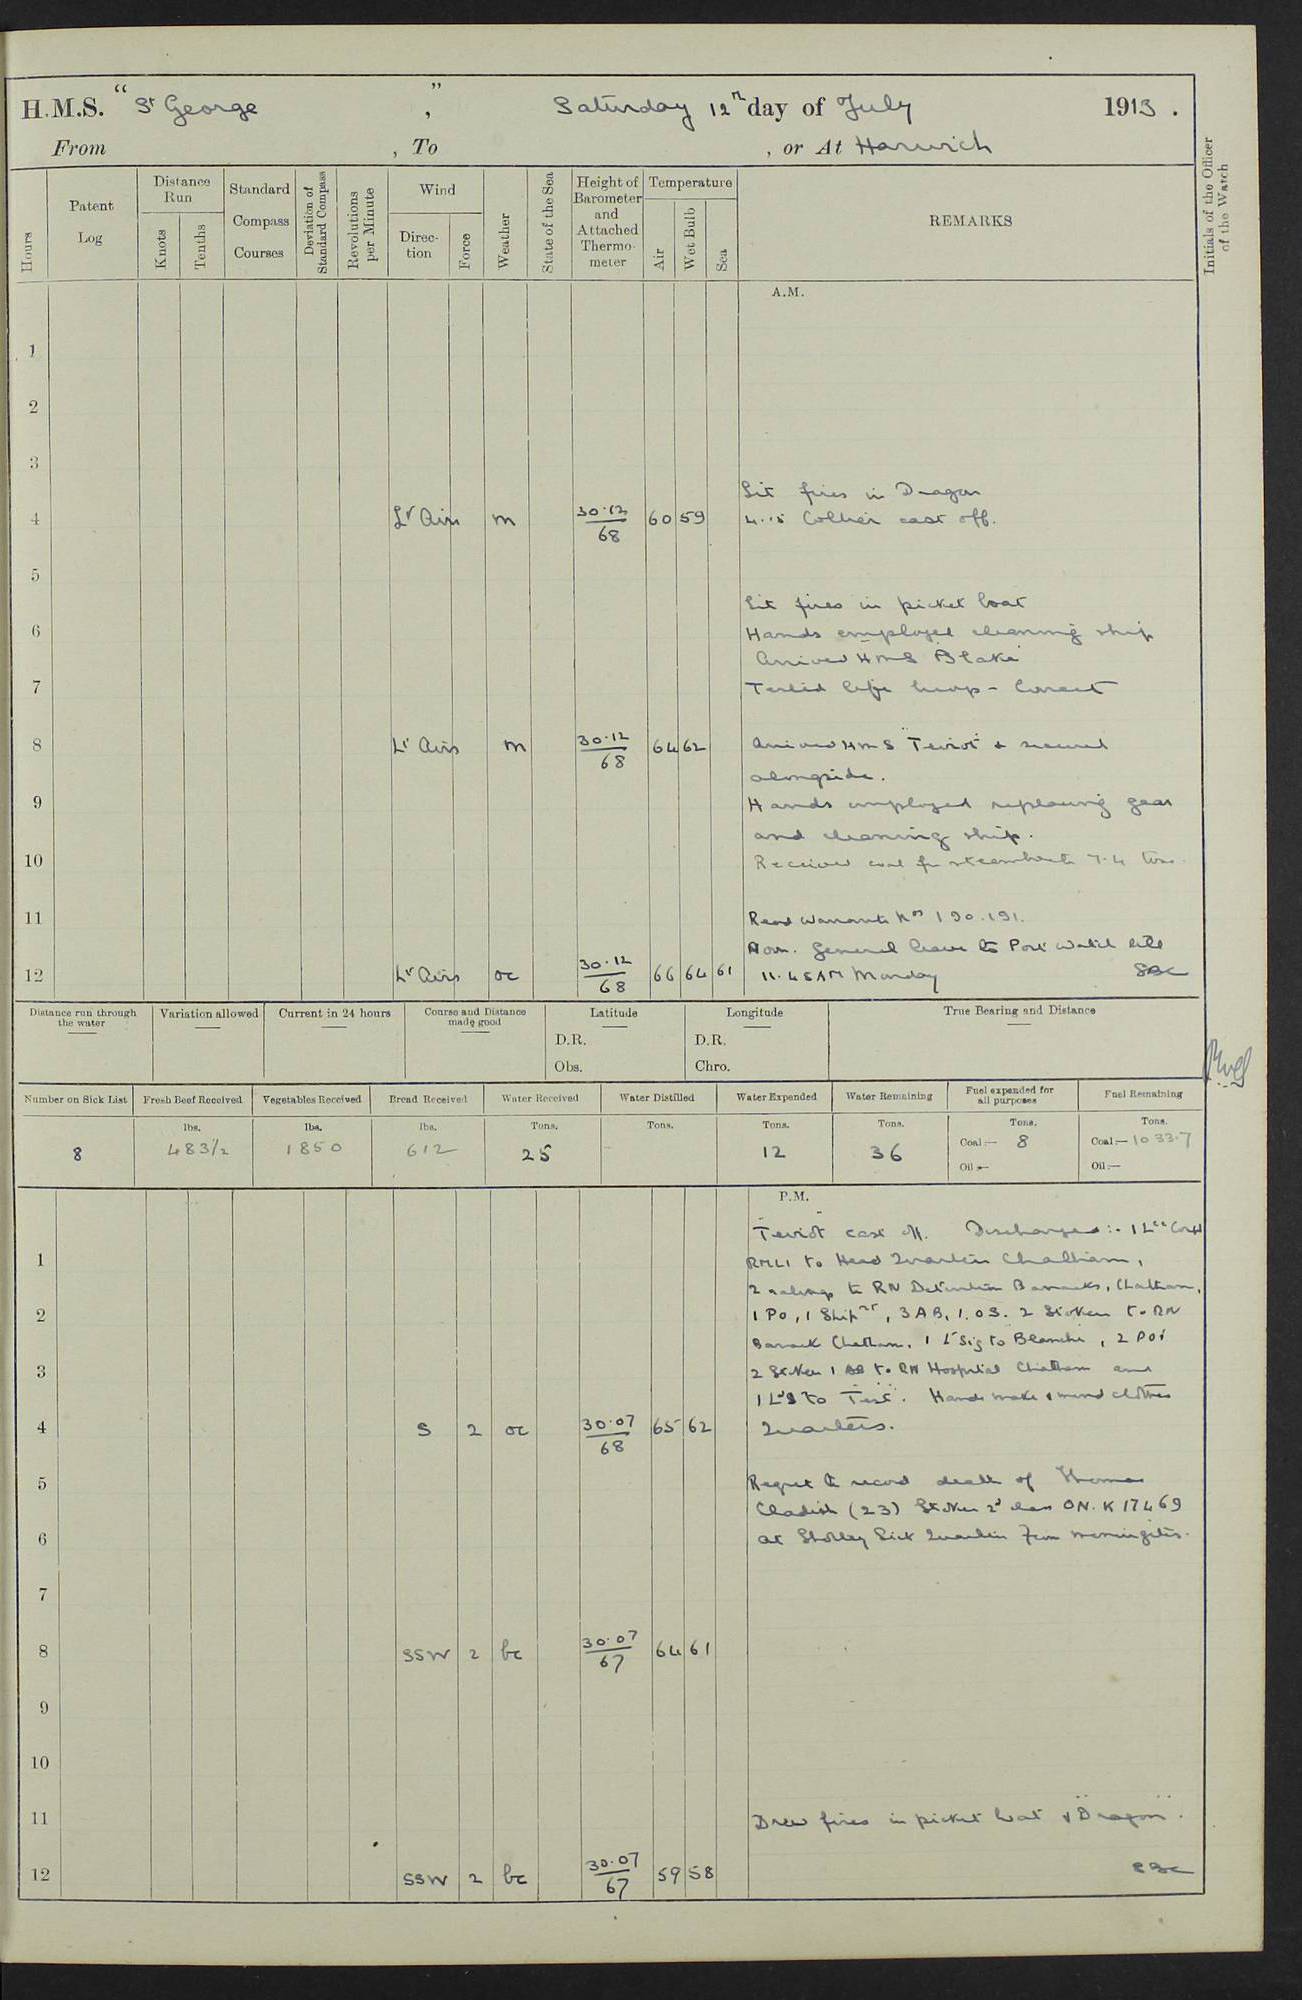 H.M.S. " St George ", Saturday 12th day of July 1913.
From , To , or At Harwich
Hours
Patent Log
Distance Run
Knots
Tenths
Standard Compass Courses
Deviation of Standard Compass
Revolutions per Minute
Wind
Direction
Force
Weather
State of the Sea
Height of Barometer and Attached Thermometer
Temperature
Air
Wet Bulb
Sea
REMARKS
Initials of the Officer of the Watch
A.M.
1
2
3
Lit fires in Dragon
4 Lt Airs m 30.12/68 60 59 4.15 Collier cast off.
5
Lit fires in picket boat
6 Hands employed cleaning ship
Arrived HMS Blake
7 Tested life buoys - Correct
8 Lt Airs m 30.12/68 64 62 Arrived HMS "Teviot" & secured
alongside.
9 Hands employed replacing gear
and cleaning ship.
10 Received coal for steamboats 7.4 tons
11 Read Warrants Nos 190.191.
Noon. General leave to Port Watch till
12 Lt Airs oc 30.12/68 66 64 61 11.45 AM Monday SBC
Distance run through the water
Variation allowed
Current in 24 hours
Course and Distance made good
Latitude
D.R.
Obs.
Longitude
D.R.
Chro.
True Bearing and Distance
Number on Sick List
Fresh Beef Received
Vegetables Received
Bread Received
Water Received
Water Distilled
Water Expended
Water Remaining
Fuel expended for all purposes
Fuel Remaining
lbs. lbs. lbs. Tons. Tons. Tons. Tons. Tons. Tons.
8 483½ 1850 612 25 - 12 36 Coal:— 8 Coal:— 1033.7
Oil:— Oil:—
P.M.
"Teviot" cast off. Discharged:- 1 Lce Corpl
1 RMLI to Head Quarters Chatham,
2 ratings to RN Detention Barracks, Chatham,
2 1 PO, 1 Shipt, 3 AB, 1. OS. 2 Stokers to RN
Barrack Chatham. 1 L Sig to Blanche, 2 POs
3 2 Stoker 1 AB to RN Hospital Chatham and
1 LS to "Test". Hands make & mend clothes
4 S 2 oc 30.07/68 65 62 Quarters.
5 Regret to record death of Thomas
Cladish (23) Stoker 2d class ON. K 17469
6 at Shotley Sick Quarters from meningitis.
7
8 SSW 2 bc 30.07/67 64 61
9
10
11 Drew fires in picket boat & "Dragon".
12 SSW 2 bc 30.07/67 59 58 SBC